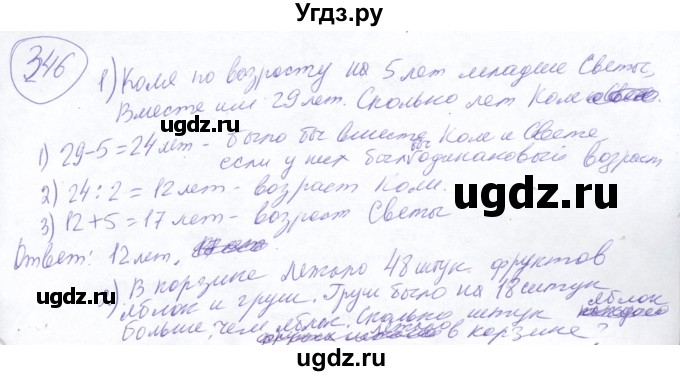 УгдЗ.ру
346
1) Коля по возрасту на 5 лет младше Светы,
Вместе им 29 лет. Сколько лет Коле
1) 29-5=24 лет - было бы вместе Коле и Свете
если у них был бы одинаковый возраст
2) 24:2=12 лет - возраст Коли.
3) 12+5=17 лет - возраст Светы
Ответ: 12 лет,
2) В корзине лежало 48 штук фруктов
яблок и груш. Груш было на 18 штук
больше, чем яблок. Сколько штук яблок
в корзине?
ugdz.ru
ugdz.ru
ugdz.ru
ugdz.ru
ugdz.ru
ugdz.ru